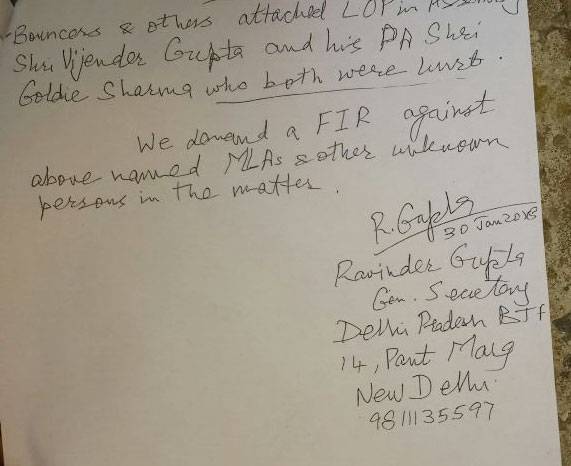 Bouncers & others attached LOP in Assembly
Shri Vijender Gupta and his PA Shri
Goldie Sharma who both were hurst.
We demand a FIR against
above named MLAs & other unknown
persons in the matter.
R. Gupta
30 Jan 2018
Ravinder Gupta
Gen. Secretary
Delhi Pradesh BJP
14, Pant Marg
New Delhi
9811135597